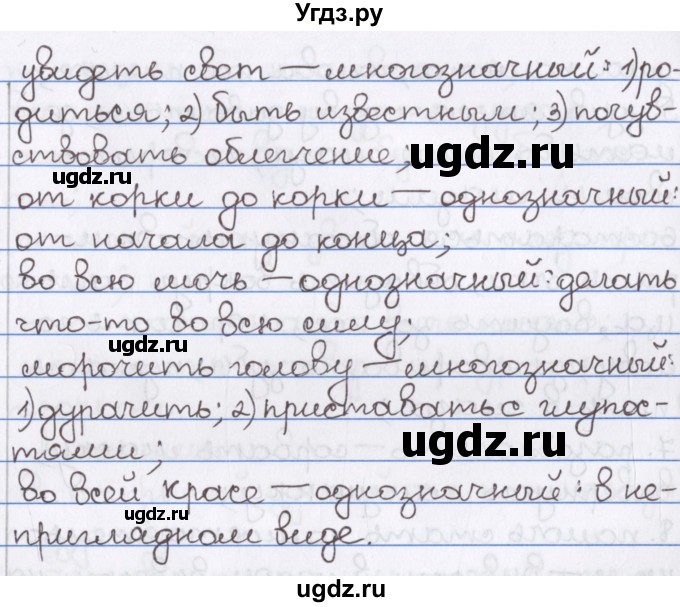 Угдз.ру
увидеть свет — многозначный: 1) ро-
диться; 2) быть известным; 3) почув-
ствовать облегчение;
ugdz.ru
ugdz.ru
от корки до корки — однозначный:
от начала до конца;
во всю мочь — однозначный: делать
что-то во всю силу;
ugdz.ru
морочить голову — многозначный:
1) дурачить; 2) приставать с глупос-
тями;
ugdz.ru
во всей красе — однозначный: в не-
ugdz.ru
приглядном виде.
ugdz.ru